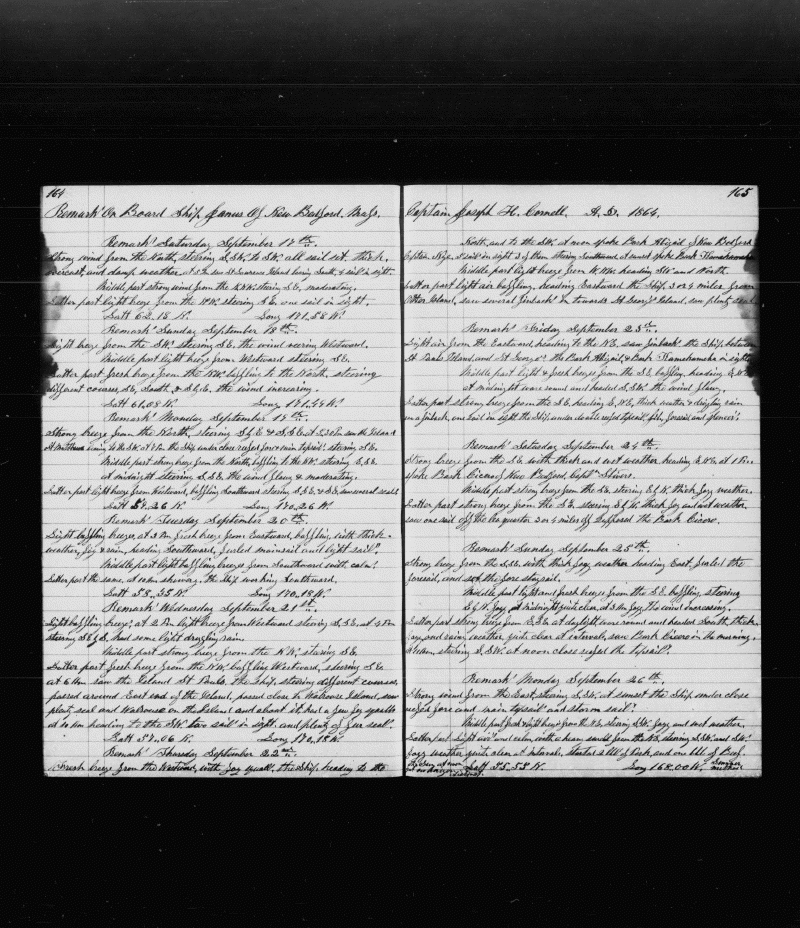 164
Remarks On Board Ship Janus Of New Bedford. Mass.
Remarks Saturday September 17th.
Strong wind from the North, steering S.SW. to SW. all sail set. thick,
overcast, and damp weather at sun St Lawrence Island bearing South, 4 sail in sight.
Middle part strong wind from the steering S.E. moderating.
Latter part light breeze from the NW. steering S.E. one sail in sight.
Latt 62.18 N. Long 171.58 W.
Remarks Sunday September 18th.
Light breeze from the SW. steering S.E. the wind veering Westward.
Middle part light breeze from Westward steering S.E.
Latter part fresh breeze from the NW. baffling to the North, steering
different courses, S.E. South, & the wind increasing.
Latt 61.08 N. Long 171.44 W.
Remarks Monday September 19th.
Strong breeze from the North, steering & S.S.E. at saw the Island
St Matthews bearing to the S.W. at the Ship under close reefed fore & main topsails. steering S.E.
Middle part strong breeze from the North, baffling to the NW. steering S.S.E.
at midnight steering S.S.E. the wind flawy & moderating.
Latter part light breeze from Westward, baffling Southward steering S.S.E. & S.E. saw several seals
Latt 59.26 N. Long 170.26 W.
Remarks Tuesday September 20th.
Light baffling breeze, at 3 Pm fresh breeze from Eastward, baffling, with thick
weather, fog & rain, heading Southward, furled mainsail and light sails.
Middle part light baffling breeze from Southward with calms.
Latter part the same, at showery. the Ship working Southward.
Latt 58.35 N. Long 170.18 W.
Remarks Wednesday September 21st.
Light baffling breeze, at 2 Pm light breeze from Westward steering S.S.E. at 4 Pm
steering had some light drizzling rain.
Middle part strong breeze from the NW. steering S.E.
Latter part fresh breeze from the NW. baffling Westward, steering S.E.
at 6 Am saw the Island St Pauls. the Ship steering different courses,
passed around East end of the Island, passed close to Walrouse Island, saw
plenty seals and Walrouse on the Island and about it. had a few fog squalls
at 10 Am heading to the SW. two sails in sight and plenty of fur seals.
Latt 57.06 N. Long 170.18 W.
Remarks Thursday September 22nd.
Fresh breeze from the Westward, with fog squalls, the Ship heading to the
165
Captain Joseph H. Cornell. A.D. 1864.
North, and to the SW. at noon spoke Bark Abigail of New Bedford
Captn 4 sail in sight 2 of them steering Southward, at sunset spoke Bark Kamehameha
Middle part light breeze from W.NW. heading SW. and North.
Latter part light air baffling, heading Eastward the Ship 3 or 4 miles from
Otter Island, saw several finbacks in towards St George's Island, saw plenty
Remarks Friday September 23rd.
Light air from the Eastward, heading to the NE. saw finbacks. the Ship between
St Pauls Island, and St George's. the Bark Abigail & Bark Kamehameha in sight
Middle part light & fresh breeze from the S.E. baffling, heading
at midnight wore round and headed S.SW. the wind flawy.
Latter part strong breeze from the S.E. heading thick weather & drizzling rain
saw a finback, one sail in sight the Ship under double reefed topsails jib, foresail and spencers.
Remarks Saturday September 24th.
Strong breeze from the S.E. with thick and wet weather, heading at 1 Pm
spoke Bark Cicero of New Bedford Captn Stivers.
Middle part strong breeze from the S.E. steering thick fog weather.
Latter part strong breeze from the S.E. steering thick fog and wet weather,
saw one sail off the lee quarter 3 or 4 miles off supposed the Bark Cicero.
Remarks Sunday September 25th.
Strong breeze from the S.SE. with thick fog weather heading East, furled the
foresail, and set the fore staysail.
Middle part light and fresh breeze from the S.E. baffling, steering
fog at midnight quite clear, at 3 Am fog the wind increasing.
Latter part strong breeze from at daylight wore round and headed South, thick
fog and rain, weather quite clear at intervals, saw Bark Cicero in the morning.
steering S.SW. at noon close reefed the topsails.
Remarks Monday September 26th.
Strong wind from the East, steering S.SW. at sunset the Ship under close
reefed fore and main topsail and storm sails.
Middle part fresh & light breeze from the NE. steering S.SW. fogy and wet weather.
Latter part light airs and calm, with a heavy swell from the NE. steering S.SW. and SW.
fogy weather quite clear at intervals, started a bbl of Pork, and one bbl of Beef.
Latt 55.58 N. Long 168.00 W.